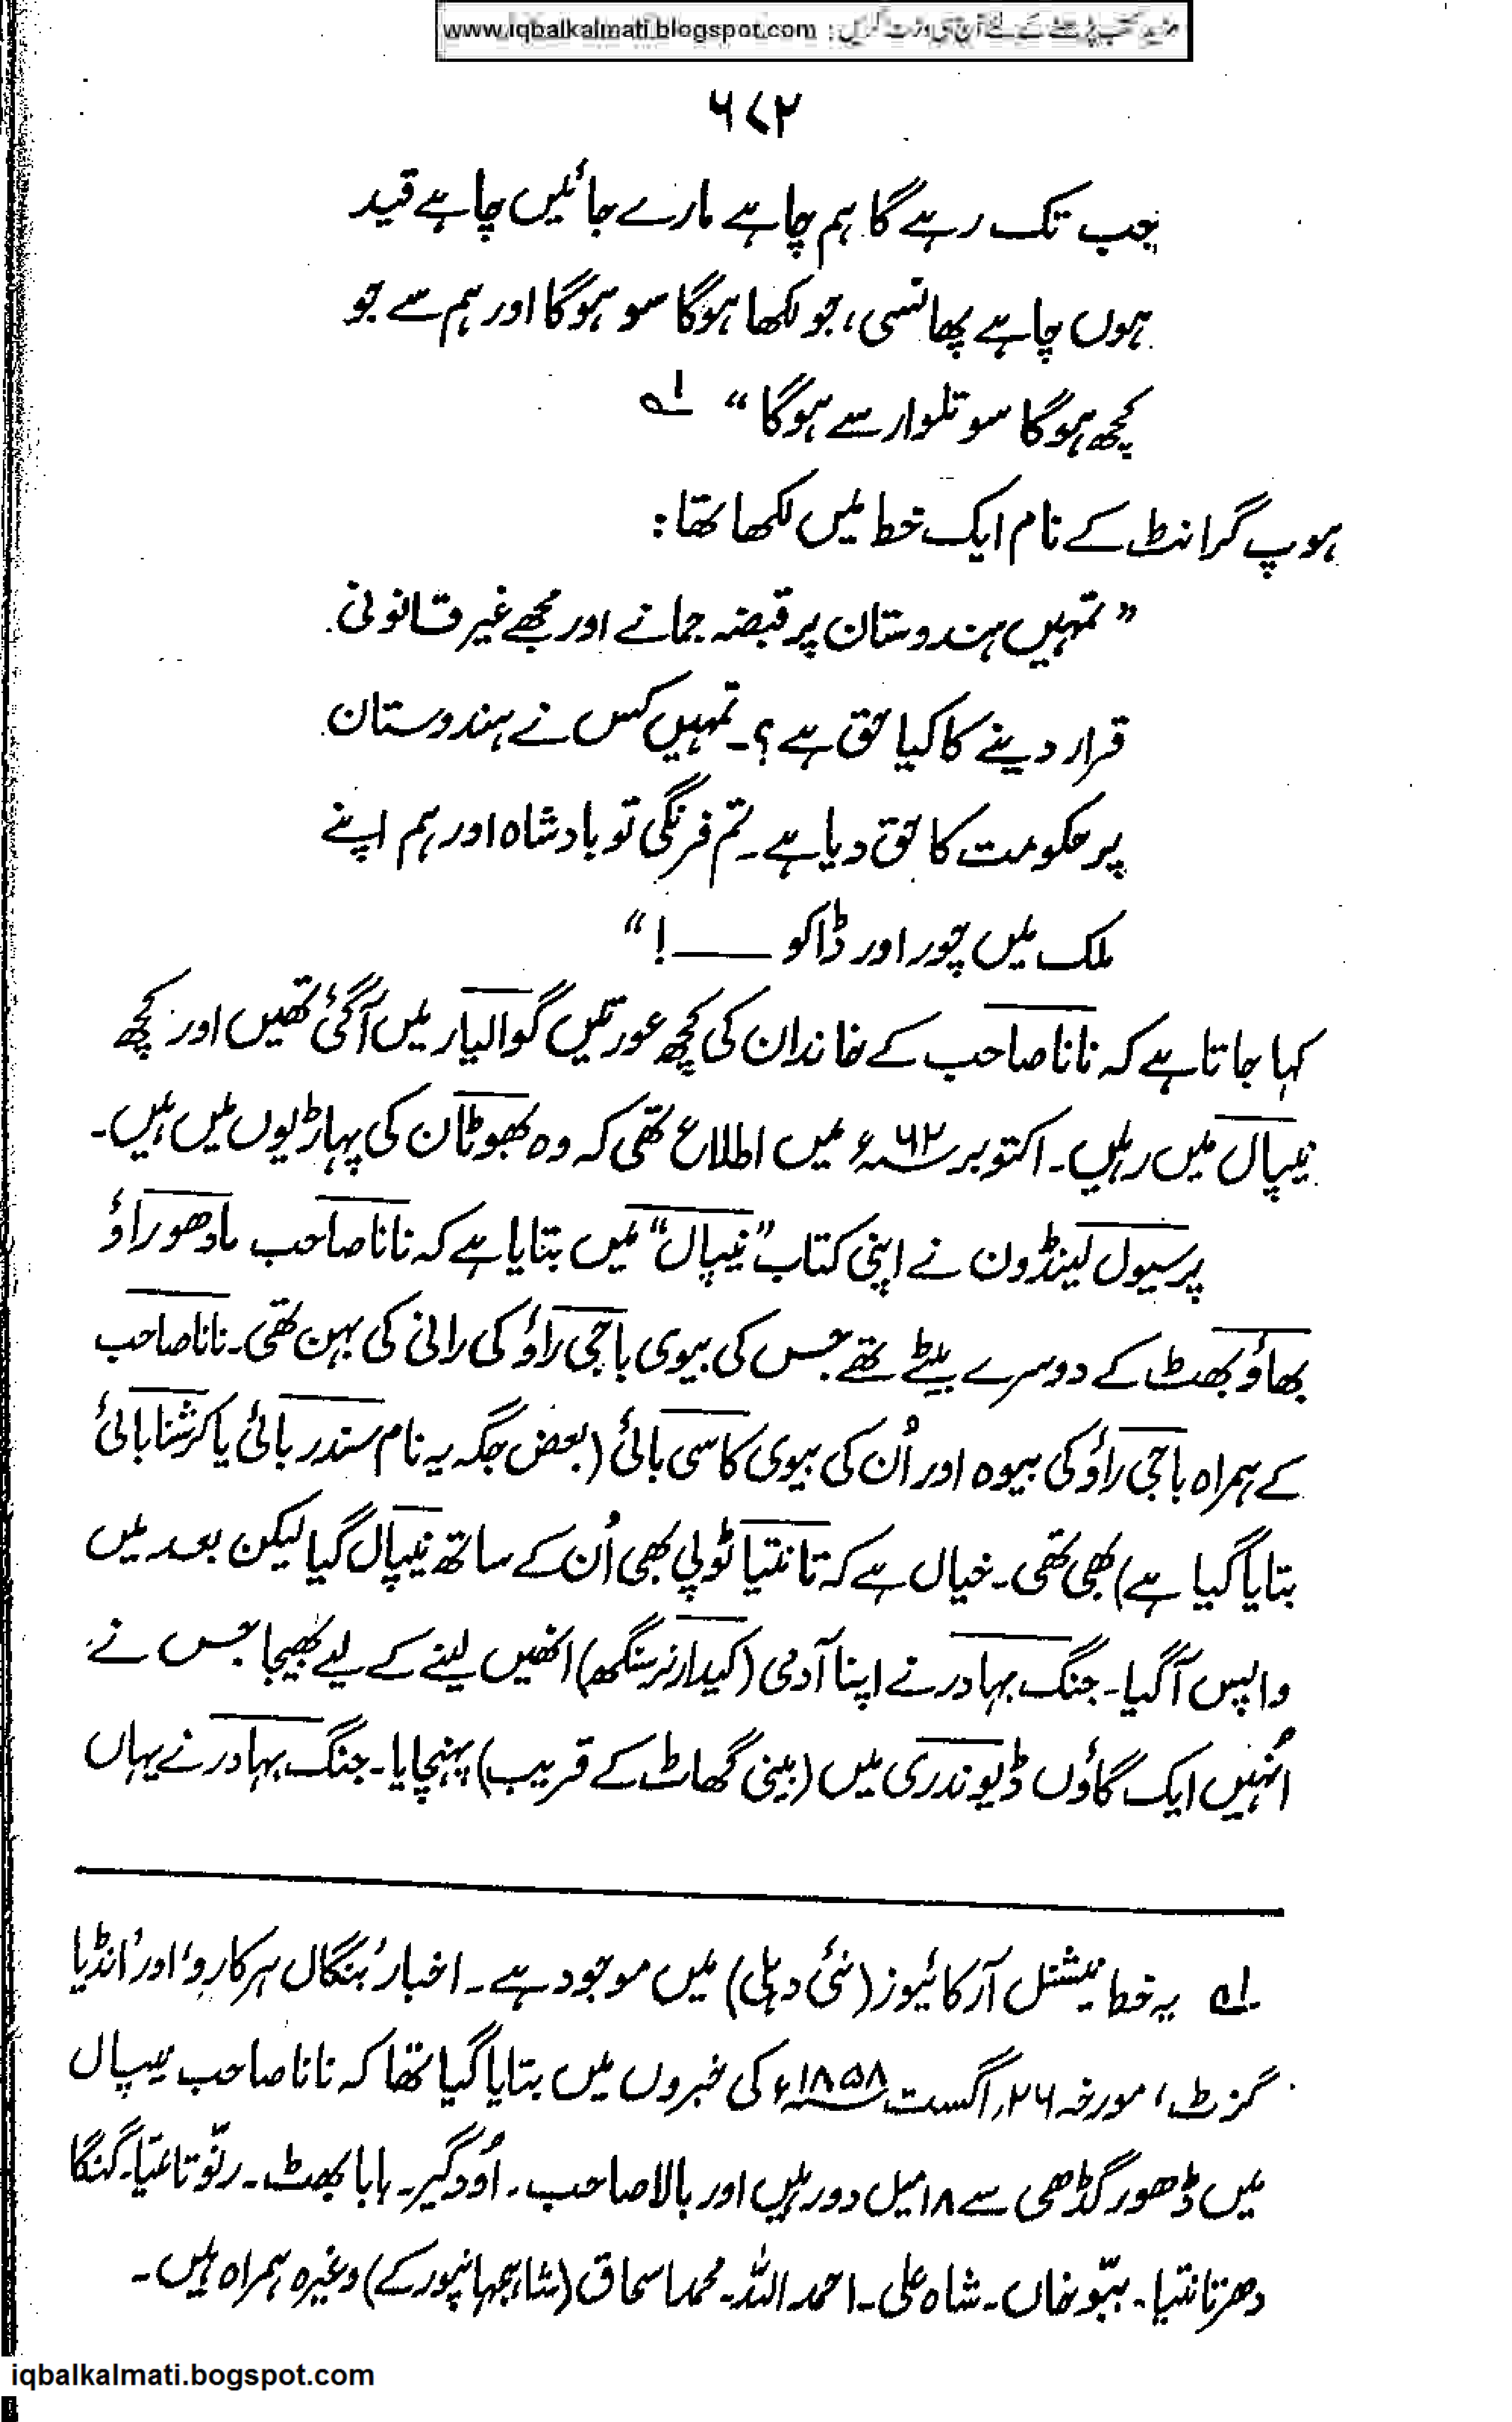 www.iqbalkalmati.blogspot.com : مزید کتب پڑھنے کے لئے آج ہی وزٹ کریں
۶۷۲
جب تک رہے گا ہم چاہے مارے جائیں چاہے قید
ہوں چاہے پھانسی، جو لکھا ہوگا سو ہوگا اور ہم سے جو
کچھ ہوگا سو تلوار سے ہوگا“ ؎۱
ہوپ گرانٹ کے نام ایک خط میں لکھا تھا:
”تمہیں ہندوستان پر قبضہ جمانے اور مجھے غیر قانونی
قرار دینے کا کیا حق ہے؟۔ تمہیں کس نے ہندوستان
پر حکومت کا حق دیا ہے۔ تم فرنگی تو بادشاہ اور ہم اپنے
ملک میں چور اور ڈاکو ——!“
کہا جاتا ہے کہ نانا صاحب کے خاندان کی کچھ عورتیں گوالیار میں آگئی تھیں اور کچھ
نیپال میں رہیں۔ اکتوبر ۶۲ء میں اطلاع تھی کہ وہ بھوٹان کی پہاڑیوں میں ہیں۔
پرسیول لینڈون نے اپنی کتاب ”نیپال“ میں بتایا ہے کہ نانا صاحب مادھو راؤ
بھاؤ بھٹ کے دوسرے بیٹے تھے جس کی بیوی باجی راؤ کی رانی کی بہن تھی۔ نانا صاحب
کے ہمراہ باجی راؤ کی بیوہ اور اُن کی بیوی کاسی بائی (بعض جگہ یہ نام سندر بائی یا کرشنا بائی
بتایا گیا ہے) بھی تھی۔ خیال ہے کہ تانتیا ٹوپی بھی اُن کے ساتھ نیپال گیا لیکن بعد میں
واپس آگیا۔ جنگ بہادر نے اپنا آدمی (کیدار نرسنگھ) انھیں لینے کے لیے بھیجا جس نے
اُنہیں ایک گاؤں ڈیوندری میں (بینی گھاٹ کے قریب) پہنچایا۔ جنگ بہادر نے یہاں
؎۱ یہ خط نیشنل آرکائیوز (نئی دہلی) میں موجود ہے۔ اخبار ’بنگال ہرکارو‘ اور ’انڈیا
گزٹ‘، مورخہ ۲۶؍ اگست ۱۸۵۸ء کی خبروں میں بتایا گیا تھا کہ نانا صاحب نیپال
میں ڈھور گڈھی سے ۱۸ میل دور ہیں اور بالا صاحب۔ اُودگیر۔ بابا بھٹ۔ رنّو تانتیا۔ گنگا
دھر تانتیا۔ ببّو خاں۔ شاہ علی۔ احمد اللہ۔ محمد اسحاق (شاہجہانپور کے) وغیرہ ہمراہ ہیں۔
iqbalkalmati.bogspot.com